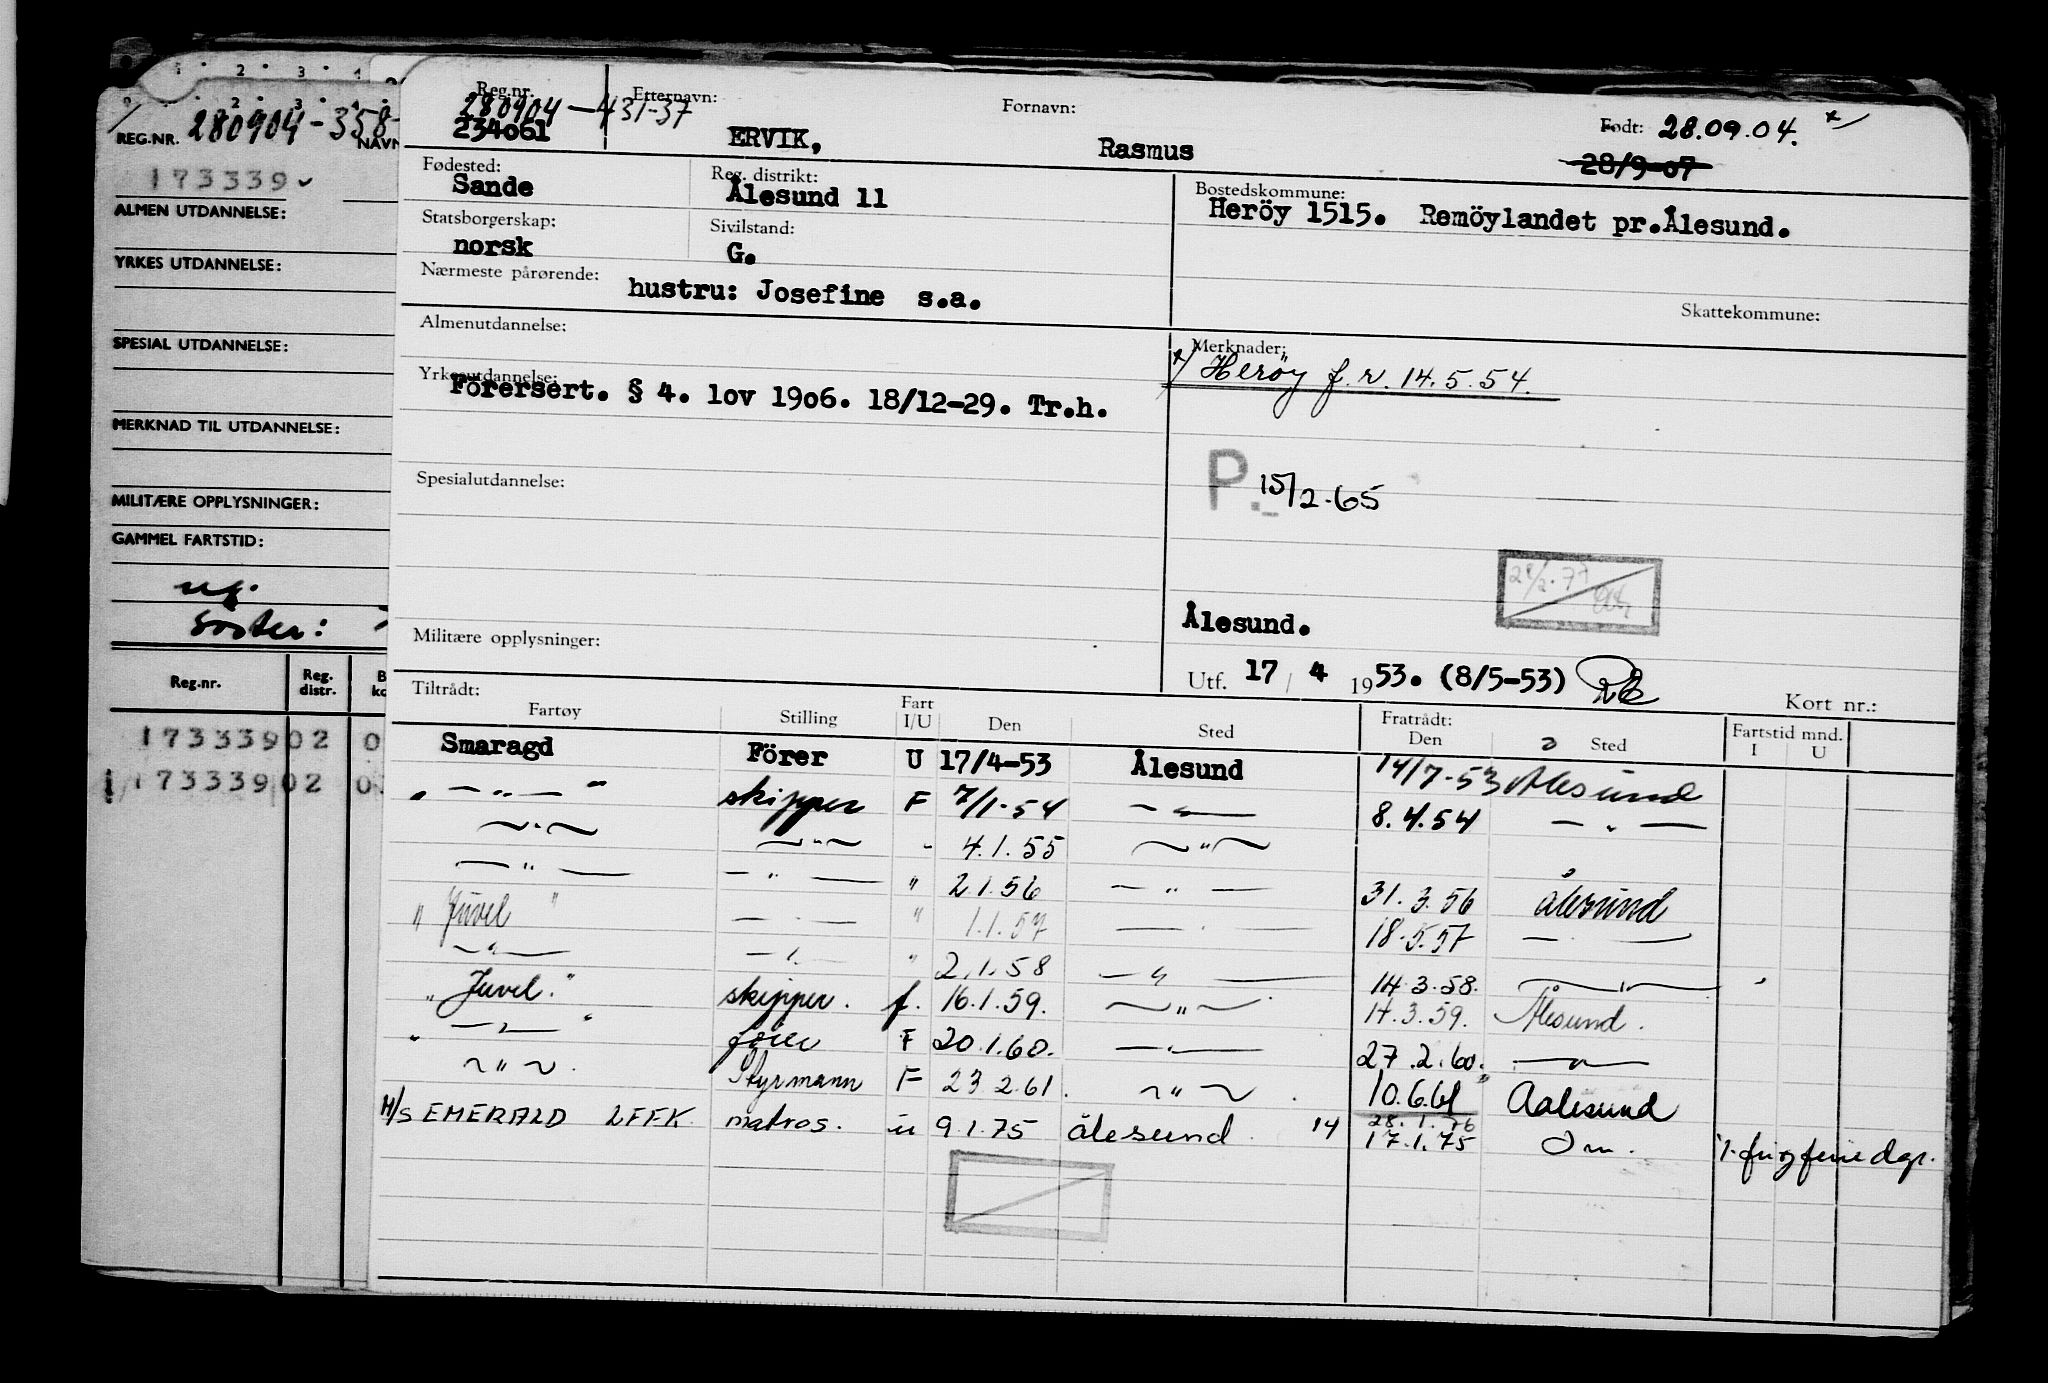 1 2 3 4
2 3 4
REG.NR. 280904-358- NAVN
173339
ALMEN UTDANNELSE:
YRKES UTDANNELSE:
SPESIAL UTDANNELSE:
MERKNAD TIL UTDANNELSE:
MILITÆRE OPPLYSNINGER:
GAMMEL FARTSTID:
Reg.nr. Reg. distr.
173339 02 0
173339 02 0
Reg.nr. Etternavn: Fornavn: Født: 28.09.04. x/
280904-431-37
234061 ERVIK, Rasmus 28/9-07
Fødested: Reg. distrikt: Bostedskommune:
Sande Ålesund 11 Heröy 1515. Remöylandet pr.Ålesund.
Statsborgerskap: Sivilstand:
norsk G.
Nærmeste pårørende:
hustru: Josefine s.a.
Skattekommune:
Almenutdannelse: Merknader:
x/ Herøy f.r. 14.5.54.
Yrkesutdannelse:
Förersert. § 4. lov 1906. 18/12-29. Tr.h.
P. 15/2-65
Spesialutdannelse:
Ålesund.
Militære opplysninger:
Utf. 17 / 4 1953. (8/5-53)
Kort nr.:
Tiltrådt: Fratrådt:
Fartøy Stilling Fart I/U Den Sted Den Sted Fartstid mnd. I U
Smaragd Förer U 17/4-53 Ålesund 14/7-53 Ålesund
" — " — " skipper F 7/1-54 — " — 8.4.54 — " —
— " — — " — " 4.1.55 — " —
— " — — " — " 2.1.56 — " — 31.3.56 Ålesund
" Juvel " — " — " 1.1.57 — " — 18.5.57 — " —
— " — — " — " 2.1.58 — " — 14.3.58. — " —
" Juvel." skipper. f. 16.1.59. — " — 14.3.59. Ålesund.
" — " — " fører F 20.1.60. — " — 27.2.60. — " —
— " — Styrmann F 23.2.61. — " — 10.6.61 Aalesund
M/S EMERALD LFFK matros. u 9.1.75 Ålesund 14 28.1.76
17.1.75